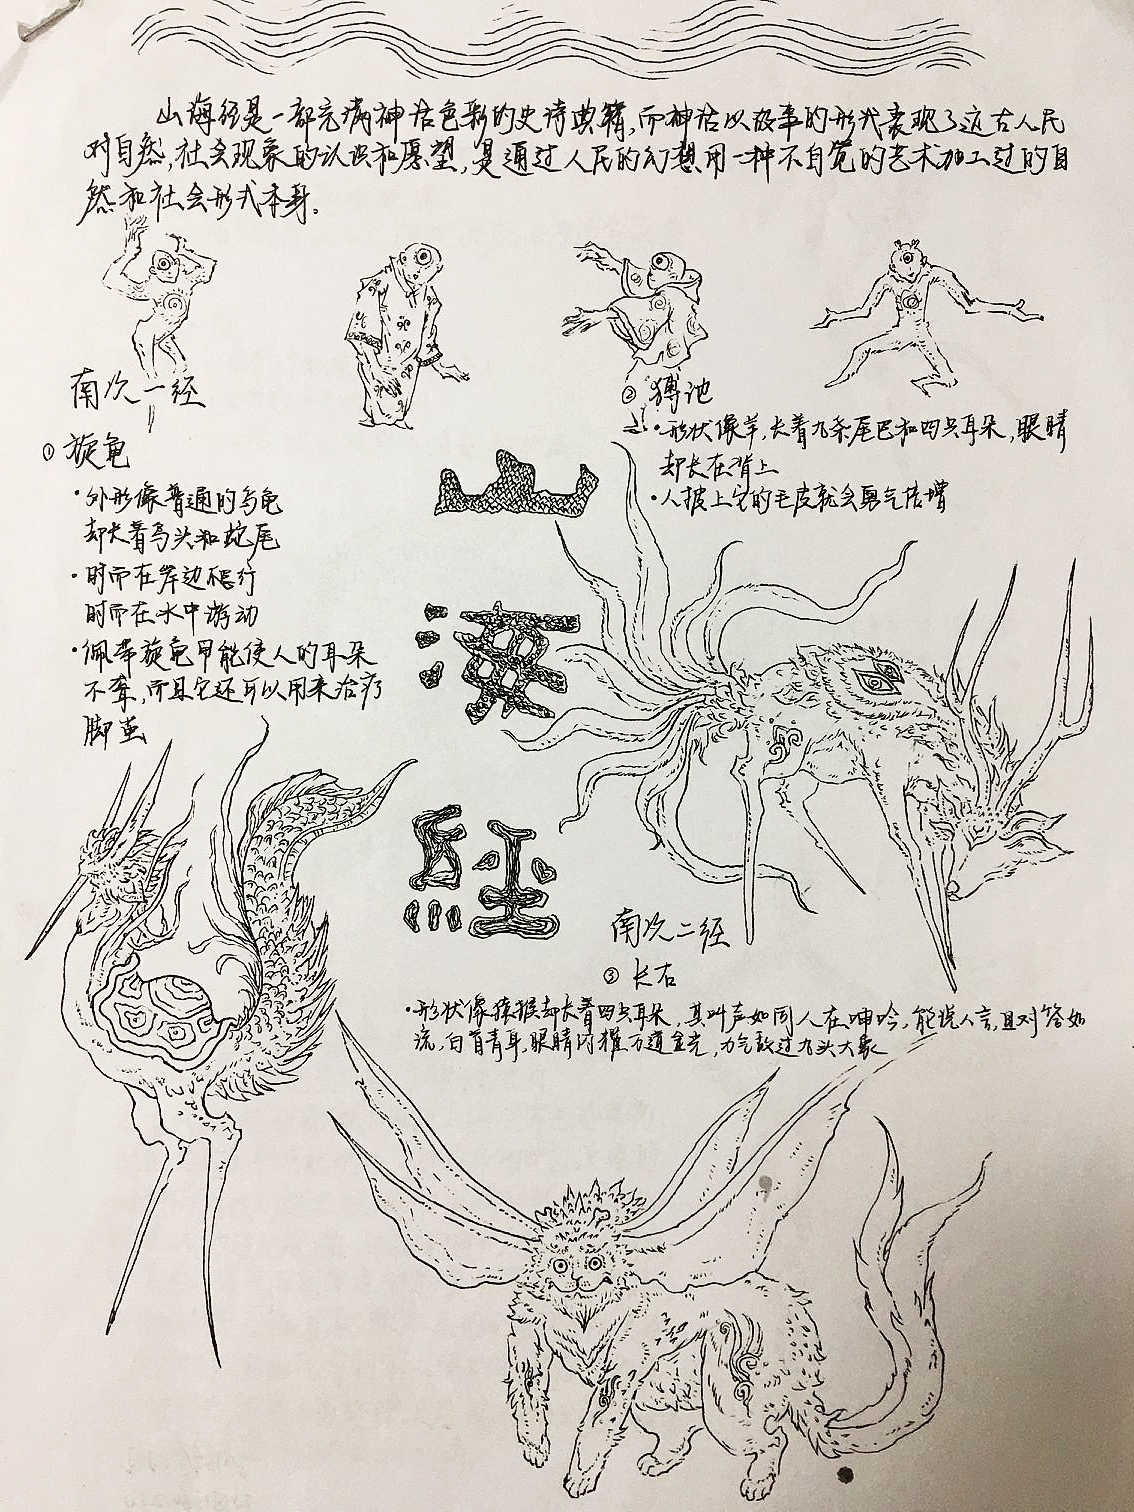 山海经是一部充满神话色彩的史诗典籍,而神话以故事的形式表现了远古人民
对自然,社会现象的认识和愿望,是通过人民的幻想用一种不自觉的艺术加工过的自
然和社会形式本身。
南次一经
① 旋龟
·外形像普通的乌龟
却长着鸟头和蛇尾
·时而在岸边爬行
时而在水中游动
·佩带旋龟甲能使人的耳朵
不聋,而且它还可以用来治疗
脚茧
② 猼訑
·形状像羊,长着九条尾巴和四只耳朵,眼睛
却长在背上
·人披上它的毛皮就会勇气倍增
山
海
經
南次二经
③ 长右
·形状像猿猴却长着四只耳朵,其叫声如同人在呻吟,能说人言,且对答如
流,白首青身,眼睛闪耀万道金光,力气敌过九头大象